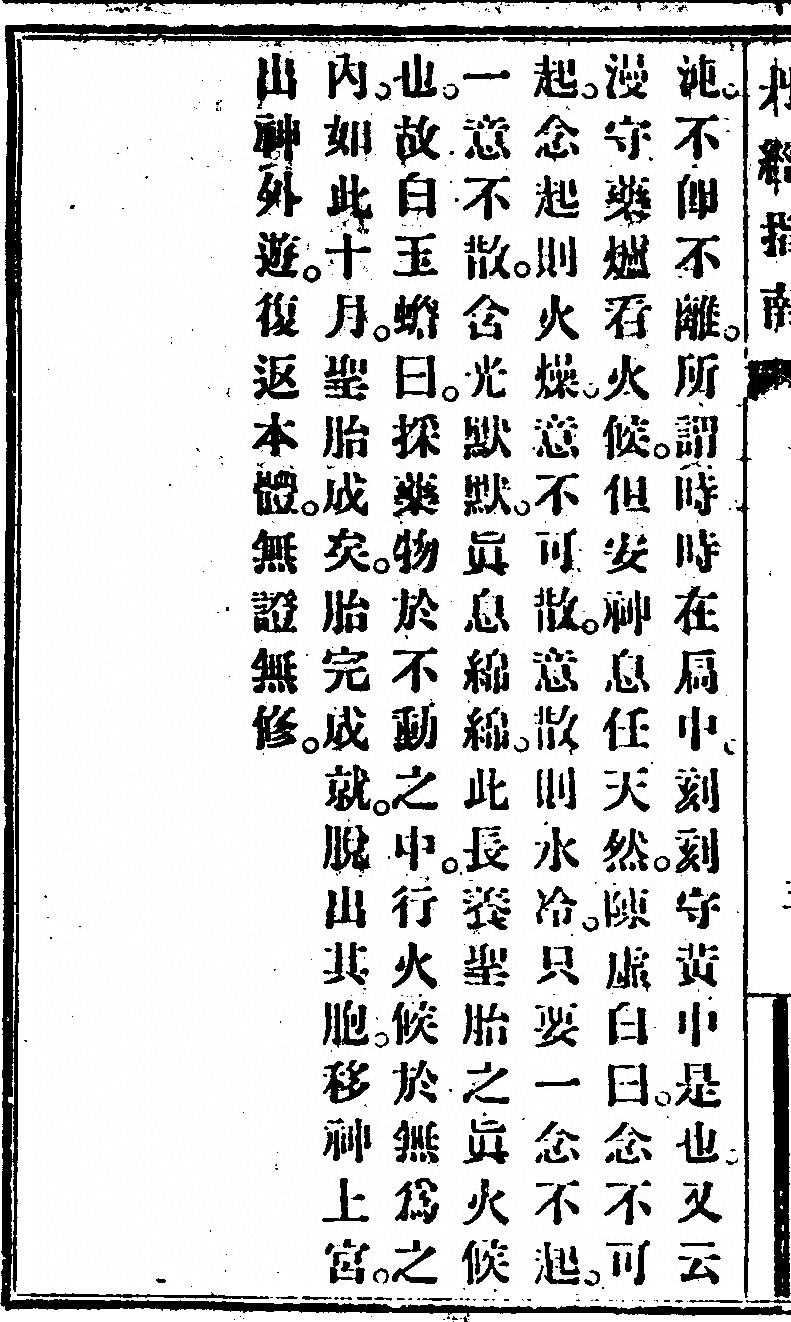 指南
沌。不卽不離。所謂時時在局中。刻刻守黃中是也。又云
漫守藥爐看火候。但安神息任天然。陳虛白曰。念不可
起。念起則火燥。意不可散。意散則水冷。只要一念不起。
一意不散。含光默默。眞息綿綿。此長養聖胎之眞火候
也。故白玉蟾曰。採藥物於不動之中。行火候於無爲之
內。如此十月。聖胎成矣。胎完成就。脫出其胞。移神上宮。
出神外遊。復返本體。無證無修。